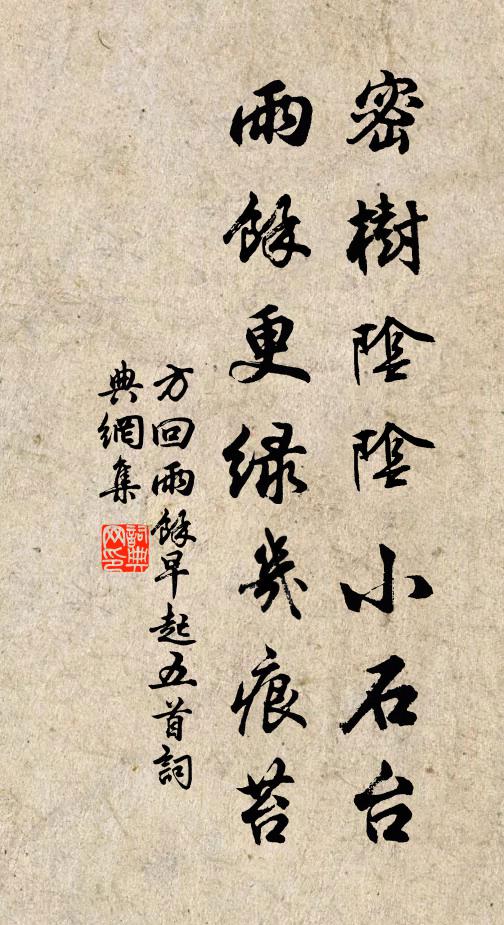 密樹陰陰小石台
雨餘更緑幾痕苔
方回雨餘早起五首詞
典網集
詞典
网印